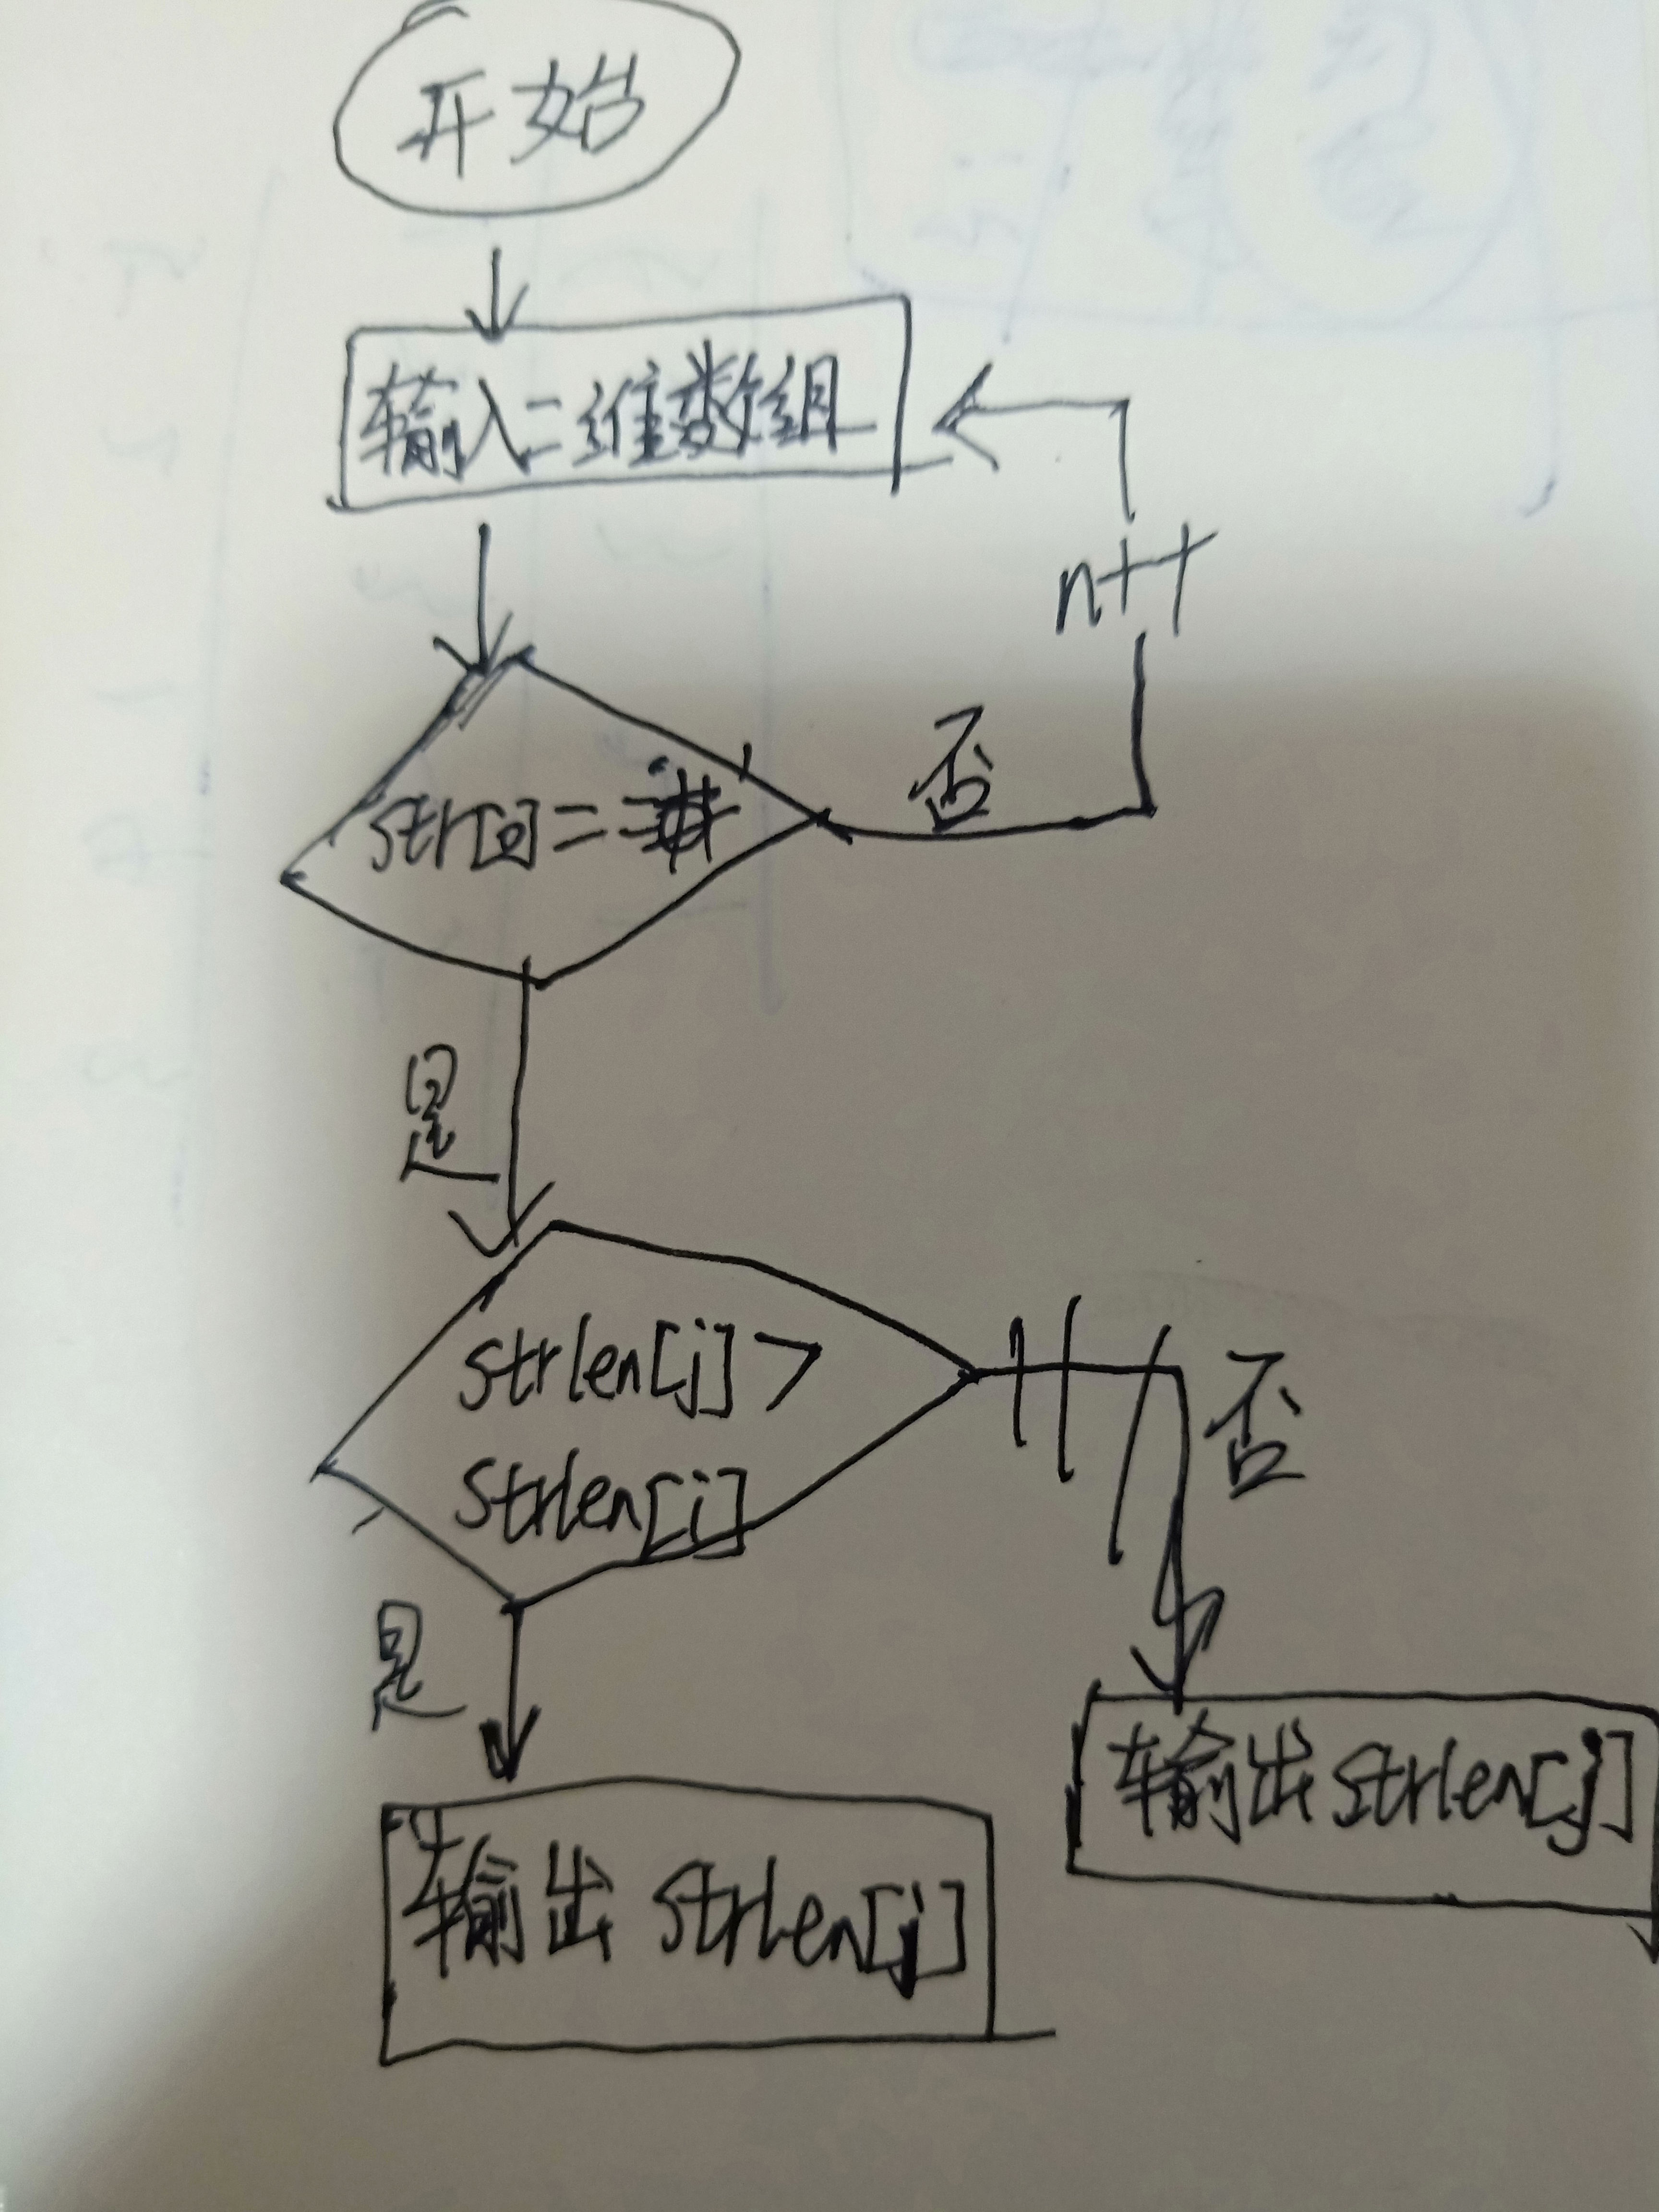 开始
输入二维数组
n++
str[0]==#
否
是
strlen[j]>
strlen[i]
否
是
输出strlen[j]
输出 strlen[j]